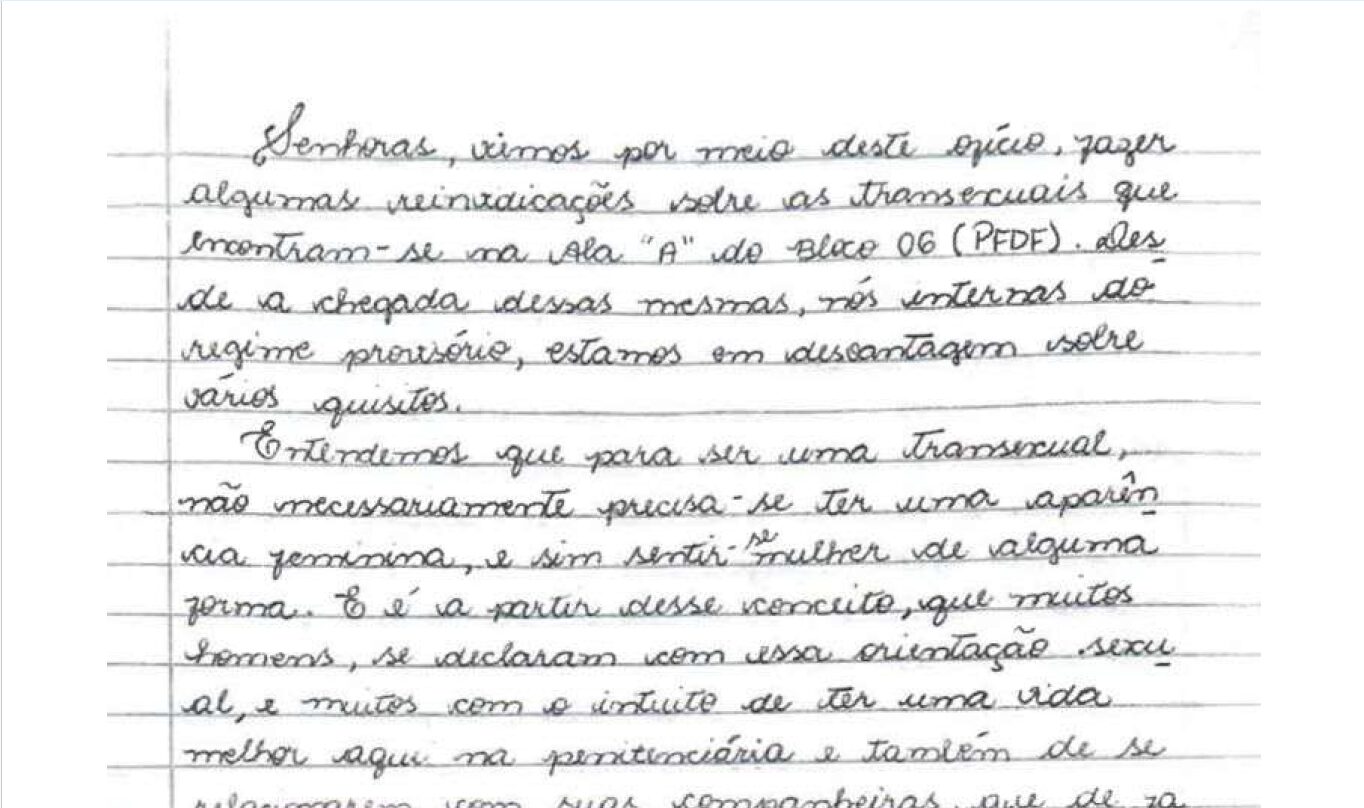 Senhoras, vimos por meio deste ofício, fazer
algumas reinvidicações sobre as transexuais que
encontram-se na Ala "A" do Bloco 06 (PFDF). Des
de a chegada dessas mesmas, nós internas do
regime provisório, estamos em desvantagem sobre
vários quisitos.
Entendemos que para ser uma transexual,
não necessariamente precisa-se ter uma aparên
cia feminina, e sim sentir-se mulher de alguma
forma. E é a partir desse conceito, que muitos
homens, se declaram com essa orientação sexu
al, e muitos com o intuito de ter uma vida
melhor aqui na penitenciária e também de se
relacionarem com suas companheiras, que de